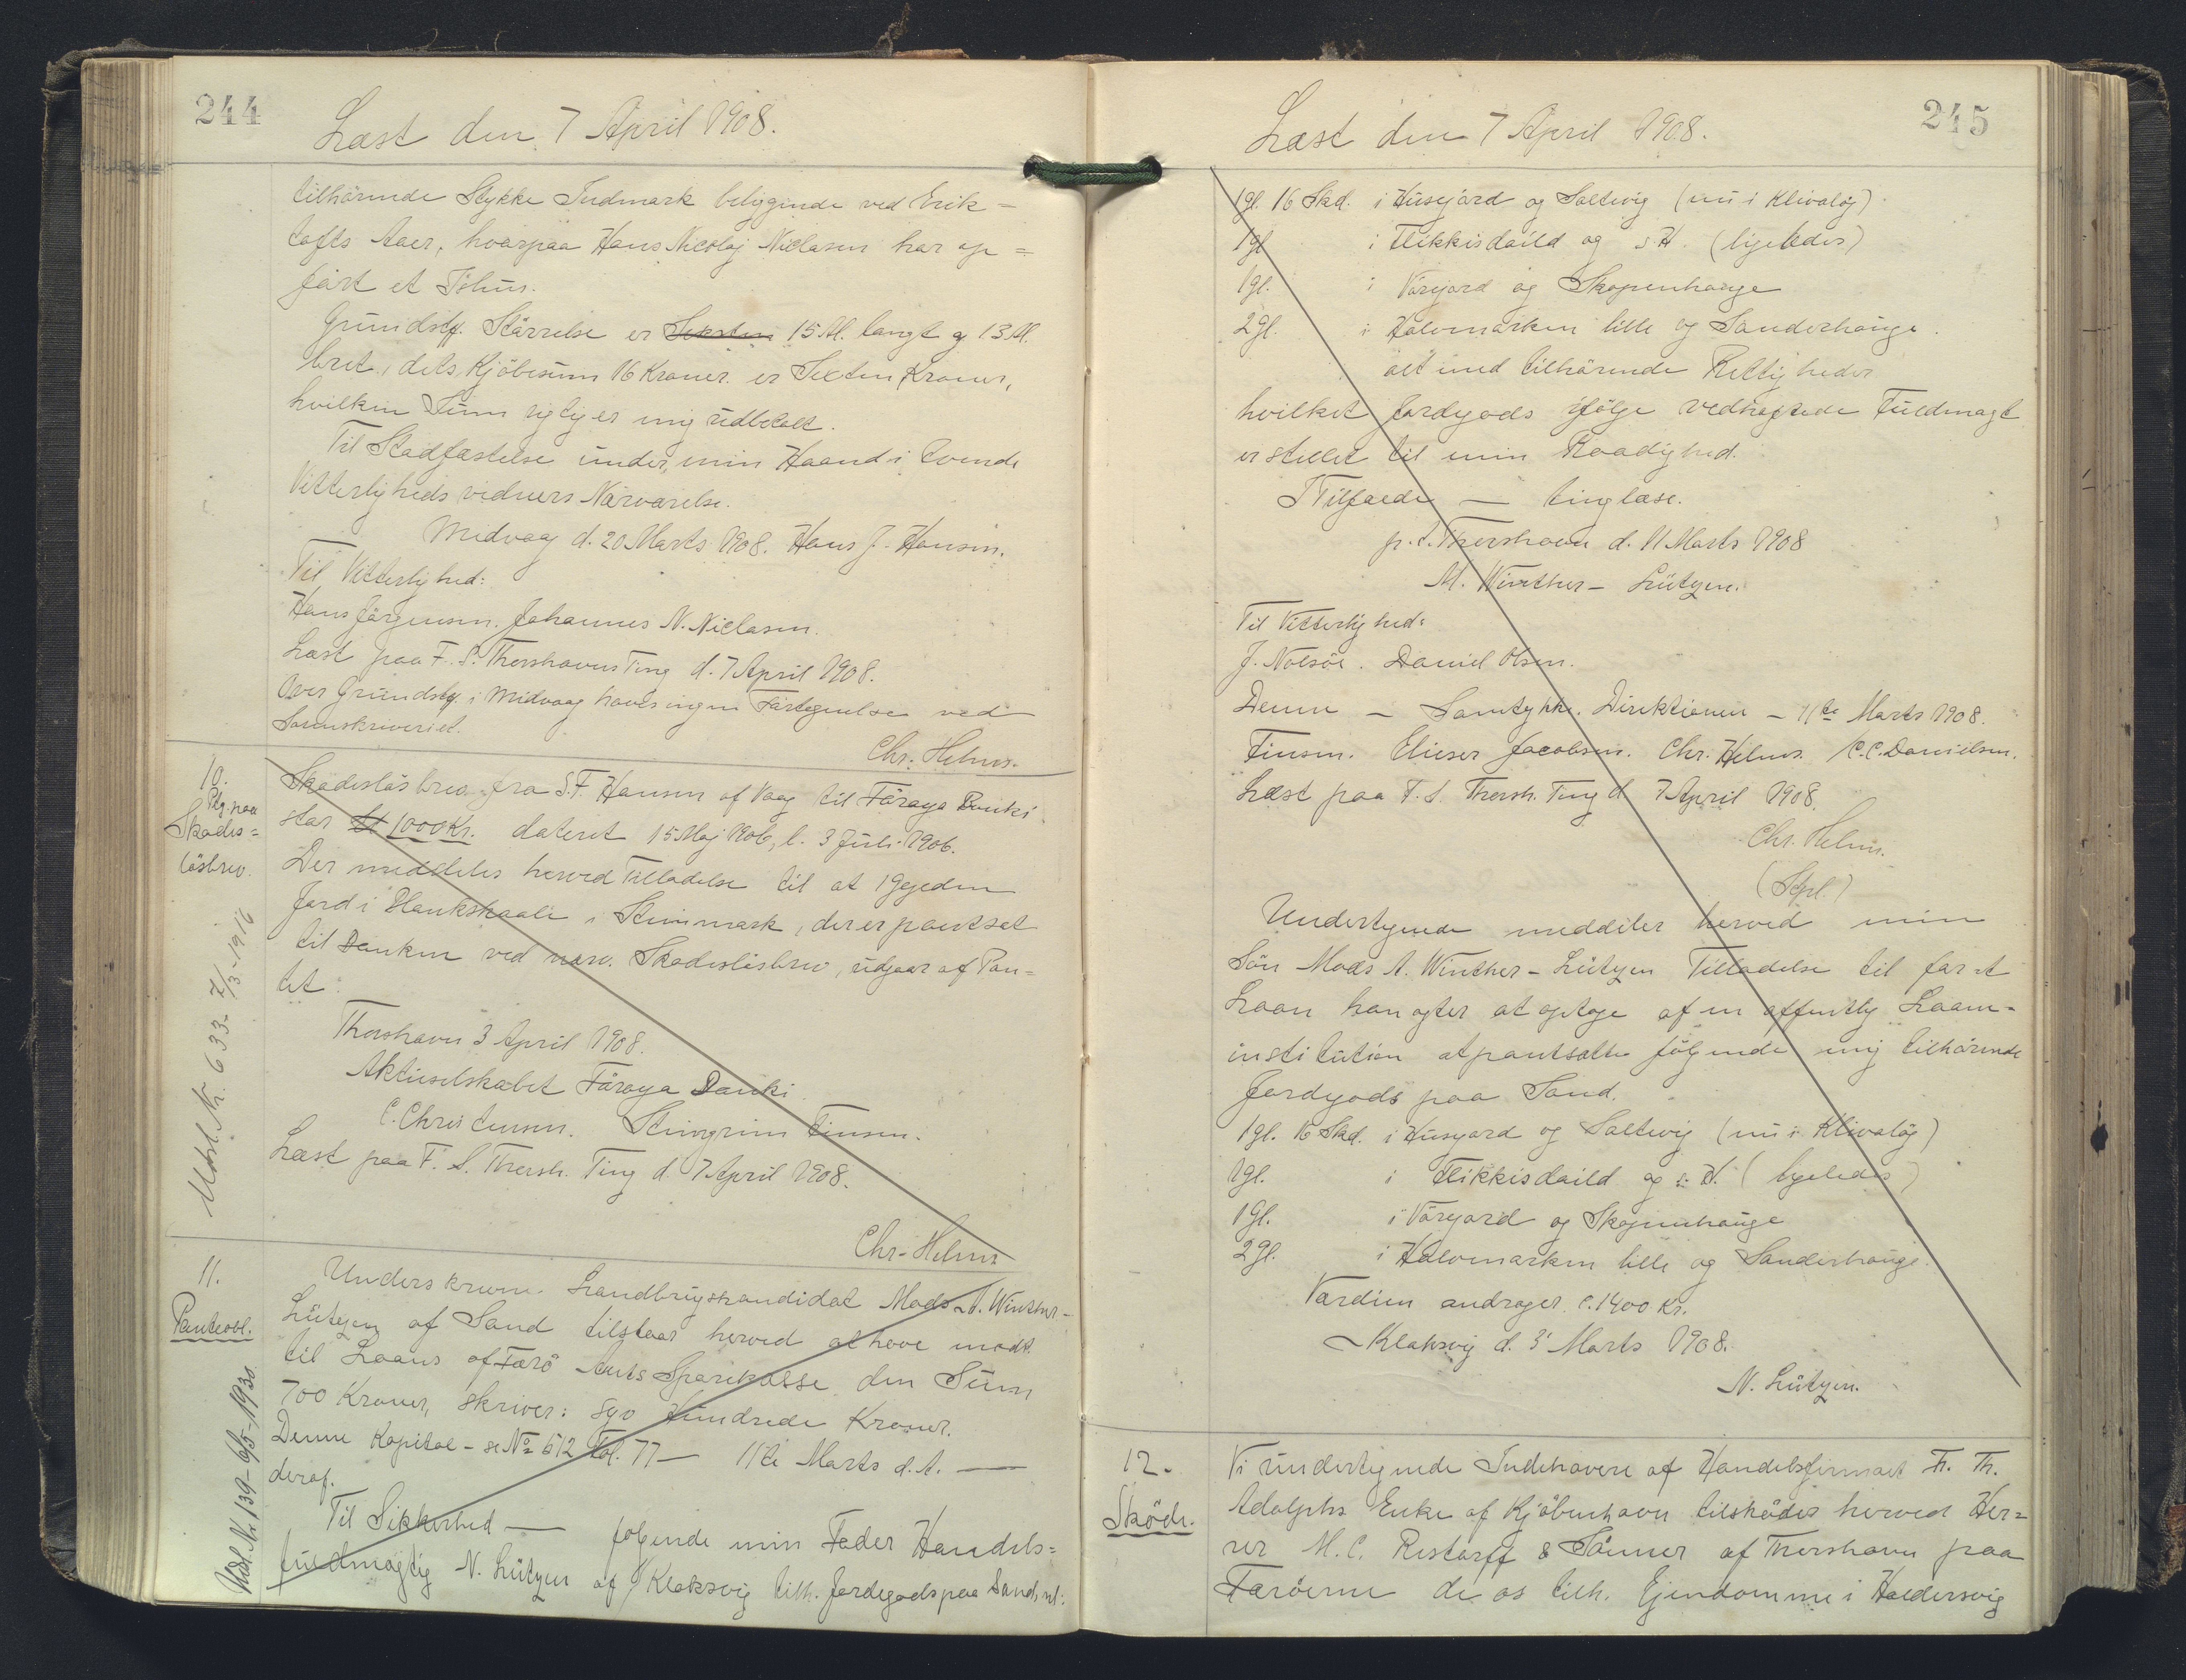 244
Læst den 7 April 1908.
tilhörende Stykke Indmark beliggende ved Erik-
tofts Aaer, hvorpaa Hans Nicolaj Niclasen har op=
fört et Ishus.
Grundst. Störrelse er Seksten 15 Al. langt og 13 Al.
bret, dets Kjöbesum 16 Kroner er Sexten Kroner,
hvilken Sum rigtig er mig udbetalt.
Til Stadfæstelse under min Haand i tvende
Vitterligheds vidners Nærværelse.
Midvaag d. 20 Marts 1908. Hans J. Hansen.
Til Vitterlighed:
Hans Jörgensen. Johannes N. Niclasen.
Læst paa F. S. Thorshavns Ting d. 7 April 1908.
Over Grundsty. i Midvaag haves ingen Fortegnelse ved
Sorenskriveriet.
Chr. Helms.
10.
Ptg. paa
Skades=
lösbrev.
Udsl. Nr. 633- 7/3-1916
Skadeslösbrev fra S.F. Hansen af Vaag til Föroya Banki
stor 1000 Kr. dateret 15 Maj 1906, l. 3 Juli 1906.
Der meddeles herved Tilladelse til at 1 Gylden
Jord i Blankskaale i Heimmark, der er pantsat
til Banken ved nærv. Skadeslösbrev, udgaar af Pan=
tet.
Thorshavn 3 April 1908.
Aktieselskabet Föroya Banki
C. Christensen. Steingrim Finsen.
Læst paa F. S. Thorsh. Ting d. 7 April 1908.
Chr. Helms
11.
Panteobl.
Udsl. Nr 139-6/5-1930
Underskrevne Landbrugskandidat Mads A. Winther-
Lützen af Sand tilstaar herved at have modt.
til Laans af Færö Amts Sparekasse den Sum
700 Kroner, skriver: syv Hundrede Kroner.
Denne Kapital - se No 612 Fol. 77 - 11te Marts d. A. —
deraf.
Til Sikkerhed — folgende min Fader Handels=
fuldmægtig N. Lützen af Klaksvig tilh. Jordegods paa Sand, nl:
245
Læst den 7 April 1908.
1 gl. 16 Skd. i Husegard og Saltvig (nu i Klivaløj)
1 gl i Flikkisdaild og s. H. (ligeledes)
1 gl. i Vørgard og Skopenhauge
2 gl. i Halvmarken lille og Sanderhauge.
alt med tilhörende Rettigheder
hvilket Jordgods ifölge vedhæftede Fuldmagt
er stillet til min Raadighed.
I Tilfælde — tinglæse.
p. t. Thorshavn d. 11 Marts 1908
M. Winther-Lützen.
Til Vitterlighed:
J. Nolsöe. Daniel Olsen.
Denne — Samtykke. Direktionen - 11te Marts 1908.
Finsen. Elieser Jacobsen. Chr. Helms. C.C. Danielsen.
Læst paa F. S. Thorsh. Ting d. 7 April 1908.
Chr. Helms.
(Stpl.)
Undertegnede meddeler herved min
Sön Mads A. Winther-Lützen Tilladelse til for et
Laan han agter at optage af en offentlig Laane-
institution at pantsætte fölgende mig tilhörende
Jordgods paa Sand.
1 gl. 16 Skd. i Husgard og Saltvig (nu i Klivaløj)
1 gl. i Flikkisdaild og s. H. (ligeledes)
1 gl. i Vørgard og Skopenhauge
2 gl. i Halvmarken lille og Sanderhauge.
Værdien andrager c. 1400 Kr.
Klaksvig d. 3' Marts 1908.
N. Lützen.
12.
Sköde.
Vi undertegnede Indehavere af Handelsfirmaet Fr. Th.
Adolphs Enke af Kjöbenhavn tilsköder herved Her=
rer M. C. Restorff & Sönner af Thorshavn paa
Færöerne de os tilh. Ejendomme i Haldersvig